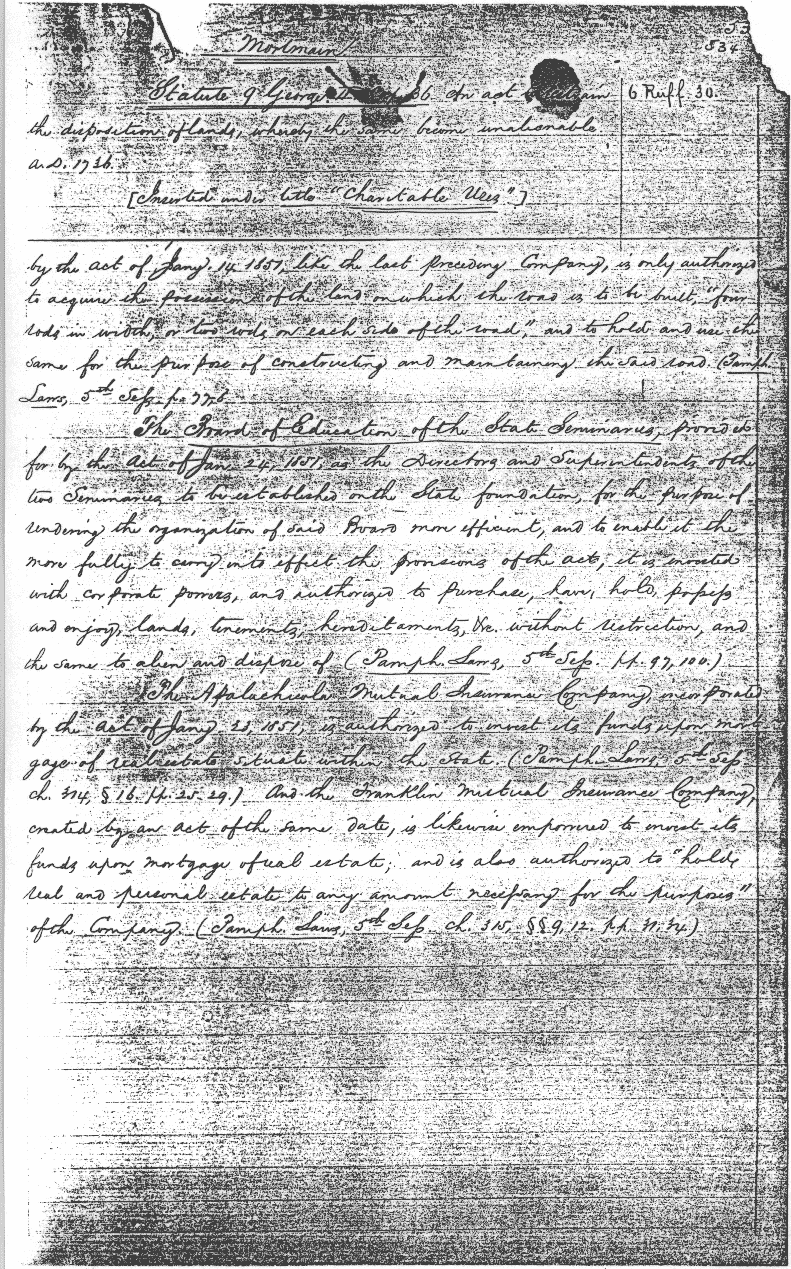 53
534
Mortmain.
Statute 9 George 36 An act 6 Ruff. 30.
the disposition of lands, whereby the same become unalienable
A.D. 1736.
[Inserted under title "Charitable Uses".]
by the act of Jany. 14, 1851, like the last preceding Company, is only authorized
to acquire the possession of the land on which the road is to be built, "four
rods in width, or two rods on each side of the road", and to hold and use the
same for the purpose of constructing and maintaining the said road. (Pamph.
Laws, 5th Sess. p.
The Board of Education of the State Seminaries, provided
for by the Act of Jan. 24, 1851, as the Directors and Superintendents of the
two Seminaries to be established on the State foundation, for the purpose of
rendering the organization of said Board more efficient, and to enable it the
more fully to carry into effect the provisions of the act, it is invested
with corporate powers, and authorized to purchase, have, hold, possess
and enjoy, lands, tenements, hereditaments, &c. without restriction, and
the same to alien and dispose of (Pamph. Laws, 5th Sess. pp. 97, 100.)
The Apalachicola Mutual Insurance Company, incorporated
by the act of Jany 23, 1851, is authorized to invest its funds upon mort
gage of real estate situate within the State. (Pamph. Laws, 5th Sess
ch. 314, § 16. pp. 25-29.) And the Franklin Mutual Insurance Company,
created by an act of the same date, is likewise empowered to invest its
funds upon mortgage of real estate; and is also authorized to "hold
real and personal estate to any amount necessary for the purposes"
of the Company. (Pamph. Laws, 5th Sess. ch. 315, §§ 9, 12. pp. 31, 34.)